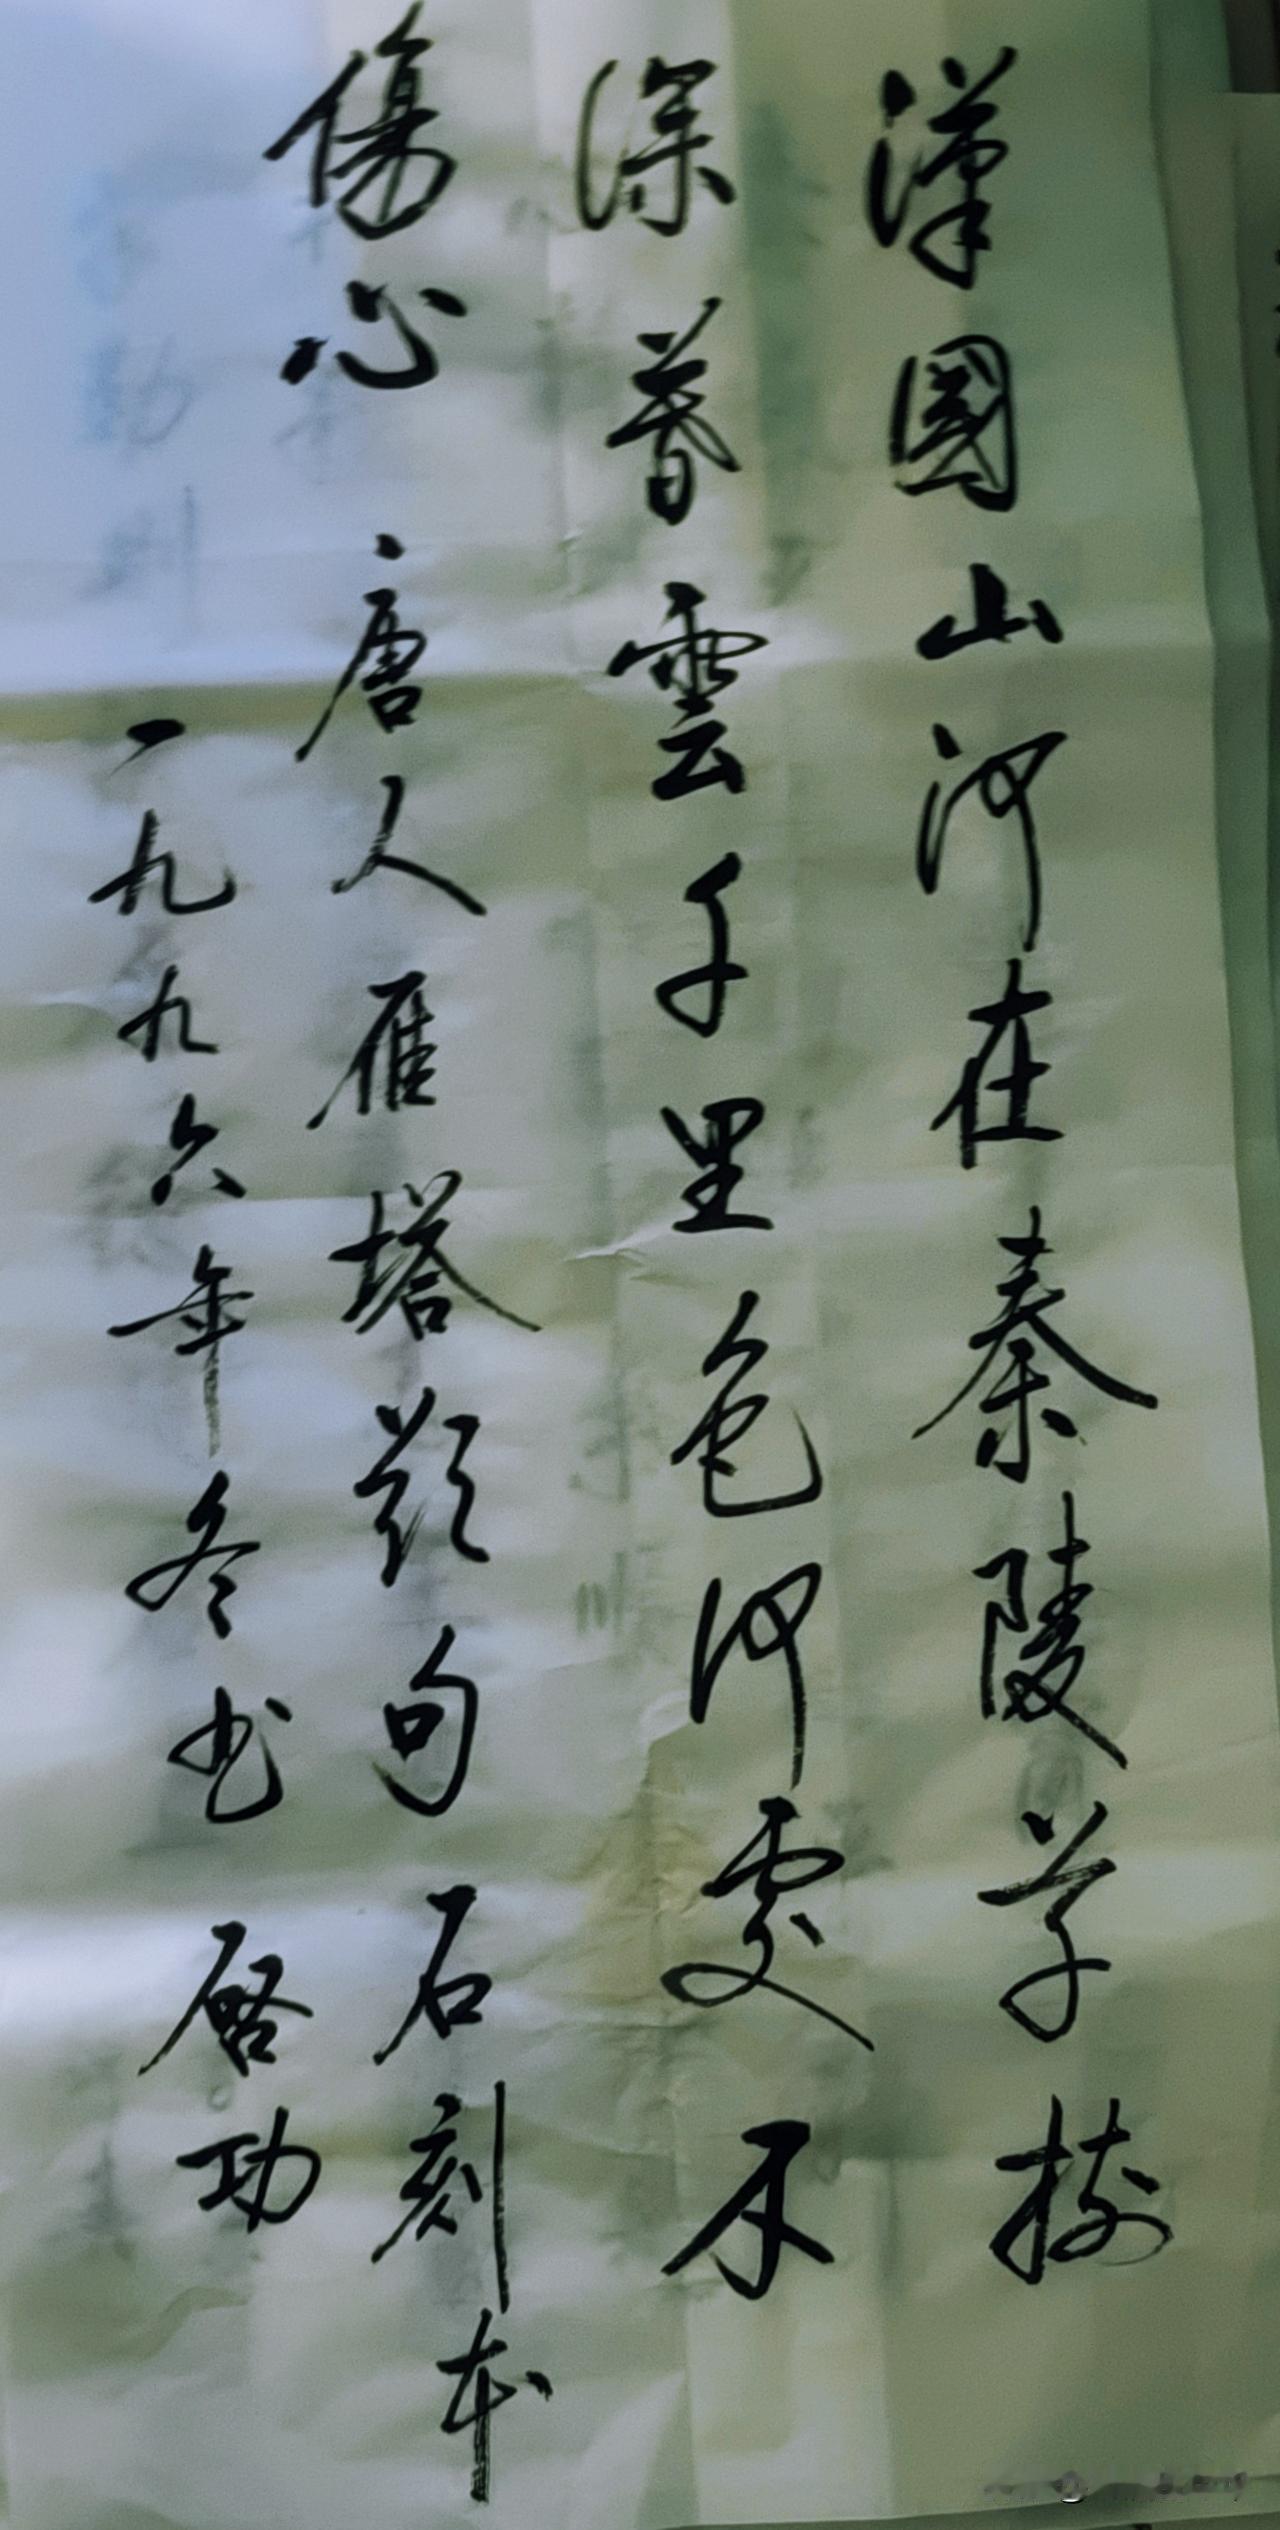 漢國山河在秦陵草樹
深暮雲千里色何處不
傷心 唐人雁塔題句石刻本
一九九六年冬书 啓功